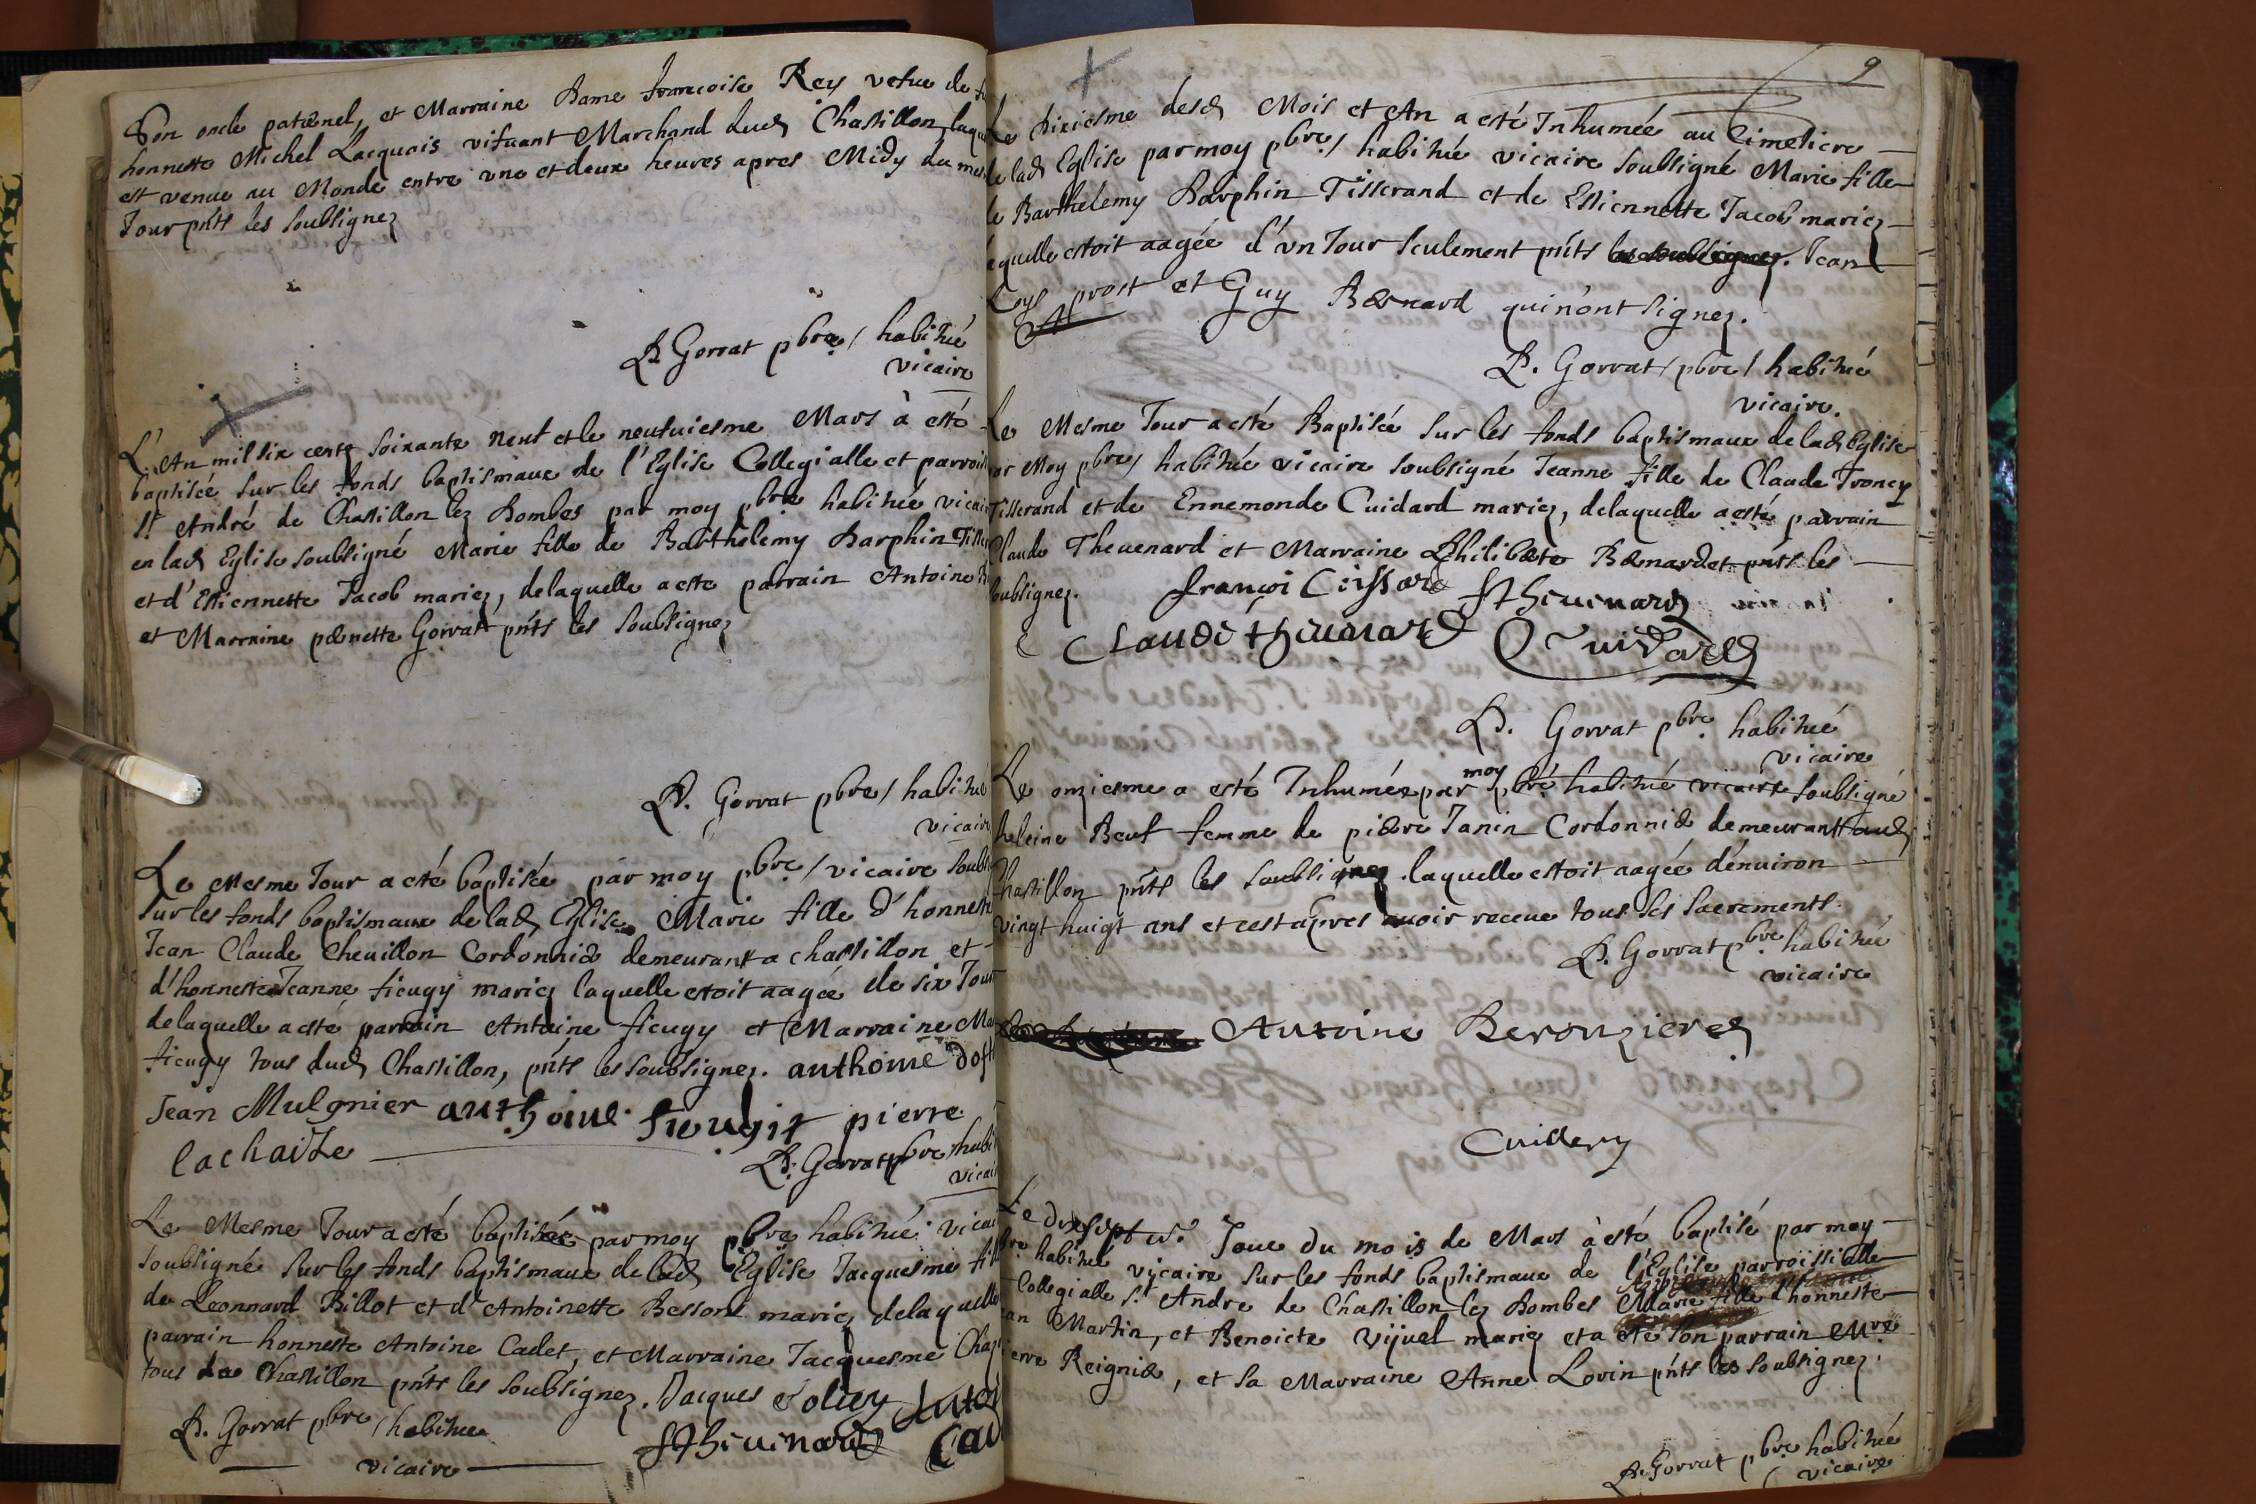 Son oncle paternel, et Marraine Dame francoise Rey vefue de
honneste Michel Lacquais vifuant Marchand dud Chastillon, laqu
est venue au Monde entre une et deux heures apres Midy du mes
Jour pnts les soubsignez
B. Gorrat pbre / habitué
vicaire
L'An mil six cents soixante neuf et le neufuiesme Mars à esté
baptisée sur les fonds baptismaux de l'Eglise Collegialle et parroi
St André de Chastillon lez Dombes par moy pbre habitué vicai
en lad Eglise soubsigné Marie fille de Barthelemy Darphin Tiss
et d'Estiennette Jacob mariez, delaquelle a esté parrain Antoine
et Marraine pernette Gorrat pnts les soubsignez
B. Gorrat pbre / habitué
vicaire
Le Mesme Jour a esté baptisée par moy pbre / vicaire soubs
sur les fonds baptismaux de lad Eglise Marie fille d'honneste
Jean Claude Cheuillon Cordonnier demeurant a chastillon et
d'honneste Jeanne fieugy mariez laquelle estoit aagée de six Jour
delaquelle a esté parrain Antoine fieugy et Marraine Ma
fieugy tous dud Chastillon, pnts les soubsignez. anthoine
Jean Mulgnier anthoine pierre
lachaise
B. Gorrat pbre habi
vicai
Le Mesme Jour a esté baptisée par moy pbre habitué vicai
soubsigné sur les fonds baptismaux de lad Eglise Jacquesme fill
de Leonnard Billot et d'Antoinette Besson mariez delaquelle
parrain honneste Antoine Cadet, et Marraine Jacquesme
tous de Chastillon pnts les soubsignez. Jacques
B. Gorrat pbre / habitué
vicaire
9
Le dixiesme desd Mois et An a esté Inhumée au Cimetiere
de lad Eglise par moy pbre / habitué vicaire soubsigné Marie fille
de Barthelemy Darphin Tisserand et de Estiennette Jacob mariez
laquelle estoit aagée d'un Jour seulement pnts les soubsignez. Jean
Loys prost et Guy Bernard qui n'ont signez.
B. Gorrat / pbre / habitué
vicaire.
Le Mesme Jour a esté Baptisée sur les fonds baptismaux de lad Eglise
par Moy pbre / habitué vicaire soubsigné Jeanne fille de Claude Troncy
Tisserand et de Ennemonde Cuidard mariez, delaquelle a esté parrain
Claude Theuenard et Marraine Philiberte Bernardet pnts les
soubsignez. françoi
Claude Cuidard
B. Gorrat pbre habitué
vicaire
Le onziesme a esté Inhumée par moy pbre habitué vicaire soubsigné
heleine Beuf femme de pierre Janin Cordonnier demeurant aud
Chastillon pnts les soubsignez laquelle estoit aagée d'enuiron
vingt huigt ans et cest apres auoir receue tous les sacrements.
B. Gorrat pbre habitué
vicaire
Antoine
Cuillery
Le dixsept Jour du mois de Mars à esté baptisé par moy
pbre habitué vicaire sur les fonds baptismaux de l'Eglise parroissialle
Collegialle St Andre de Chastillon lez Dombes Marie fille d'honneste
Jean Martin, et Benoicte mariez et a été son parrain Mre
pierre Reignier, et sa Marraine Anne Lovin pnts les soubsignez.
B. Gorrat pbre habitué
vicaire